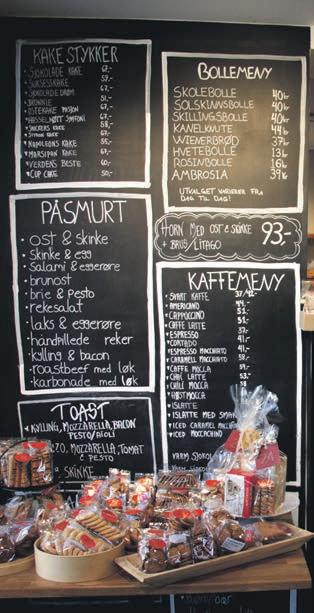 KAKE STYKKER
• SJOKOLADE KAKE 67,-
• SUKSESSKAKE 59,-
• SJOKOLADEDRØM 67,-
• BROWNIE 51,-
• OSTEKAKE PASJON 67,-
• HASSELNØTT SYMFONI 67,-
• SNICKERS KAKE
KAKE
• NAPOLEONS KAKE
• MARSIPAN KAKE
• VERDENS BESTE 60,-
• CUP CAKE 50,-
BOLLEMENY
SKOLEBOLLE 40kr
SOLSKINNSBOLLE 40kr
SKILLINGSBOLLE 40kr
KANELKNUTE 44kr
WIENERBRØD 37kr
HVETEBOLLE 13kr
ROSINBOLLE 16kr
AMBROSIA 39kr
UTVALGET VARIERER FRA
DAG TIL DAG!
PÅSMURT
• OST & SKINKE
• SKINKE & EGG
• SALAMI & EGGERØRE
• BRUNOST
• BRIE & PESTO
• REKESALAT
• LAKS & EGGERØRE
• HÅNDPILLEDE REKER
• KYLLING & BACON
• ROASTBEEF MED LØK
• KARBONADE MED LØK
HORN MED OST & SKINKE
+ BRUS/LITAGO 93,-
KAFFEMENY
• SVART KAFFE 37/42,-
• AMERICANO 44,-
• CAPPUCCINO 51,-
• CAFFE LATTE 51,-
• ESPRESSO 37,-
• CORTADO 41,-
• ESPRESSO MACCHIATO 41,-
• CARAMELL MACCHIATO
• CAFFE MOCCA 59,-
• CHAI LATTE 53,-
• CHILI MOCCA 58,-
• HØSTMOCCA
• ISLATTE
• ISLATTE MED SMAK
• ICED CARAMEL
• ICED MOCCACHINO
VARM SJOKO
TOAST
• KYLLING, MOZZARELLA, BACON
PESTO/AIOLI
MOZZARELLA, TOMAT
& PESTO
SKINKE